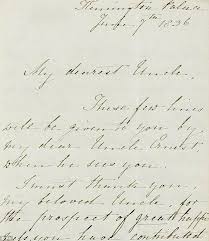 Kensington Palace
June 7th 1836
My dearest Uncle,
These few lines
will be given to you by
my dear Uncle Ernest
when he sees you.
I must thank you,
my beloved Uncle, for
the prospect of great happi
you have contributed